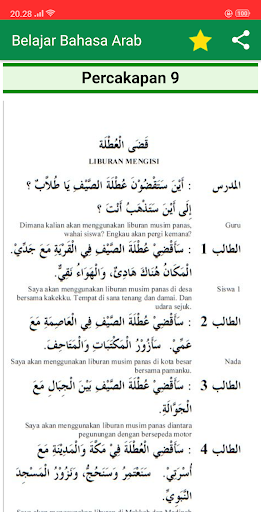 20.28
Belajar Bahasa Arab
Percakapan 9
قَضَى الْعُطْلَة
LIBURAN MENGISI
المدرس : أَيْنَ سَتَقْضُوْنَ عُطْلَةَ الصَّيْفِ يَا طُلاَّبُ ؟
إِلَى أَيْنَ سَتَذْهَبُ أَنْتَ ؟
Dimana kalian akan menggunakan liburan musim panas, Guru
wahai siswa? Engkau akan pergi kemana?
الطالب 1 : سَأَقْضِيْ عُطْلَةَ الصَّيْفِ فِي الْقَرْيَةِ مَعَ جَدِّيْ.
الْمَكَانُ هُنَاكَ هَادِئٌ، وَالْهَوَاءُ نَقِيٌّ.
Saya akan menggunakan liburan musim panas di desa Siswa 1
bersama kakekku. Tempat di sana tenang dan damai. Dan
udara sejuk.
الطالب 2 : سَأَقْضِيْ عُطْلَةَ الصَّيْفِ فِي الْعَاصِمَةِ مَعَ
عَمِّيْ. سَأَزُوْرُ الْمَكْتَبَاتِ وَالْمَتَاحِفَ.
Saya akan menggunakan liburan musim panas besar Nada
bersama pamanku.
الطالب 3 : سَأَقْضِيْ عُطْلَةَ الصَّيْفِ بَيْنَ الْجِبَالِ مَعَ
الْجَوَّالَةِ.
Saya akan menggunakan liburan musim panas diantara
pegunungan dengan bersepeda motor
الطالب 4 : سَأَقْضِيْ عُطْلَةَ الصَّيْفِ فِيْ مَكَّةَ وَالْمَدِيْنَةِ مَعَ
أُسْرَتِيْ. سَنَعْتَمِرُ وَسَنَحُجُّ، وَنَزُوْرُ الْمَسْجِدَ
النَّبَوِيَّ.